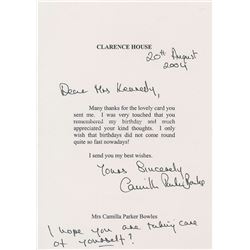 CLARENCE HOUSE
20th August
2004
Dear Mrs Kennedy,
Many thanks for the lovely card you
sent me. I was very touched that you
remembered my birthday and much
appreciated your kind thoughts. I only
wish that birthdays did not come round
quite so fast nowadays!
I send you my best wishes.
Yours Sincerely
Camilla Parker Bowles
Mrs Camilla Parker Bowles
I hope you are taking care
of yourself?